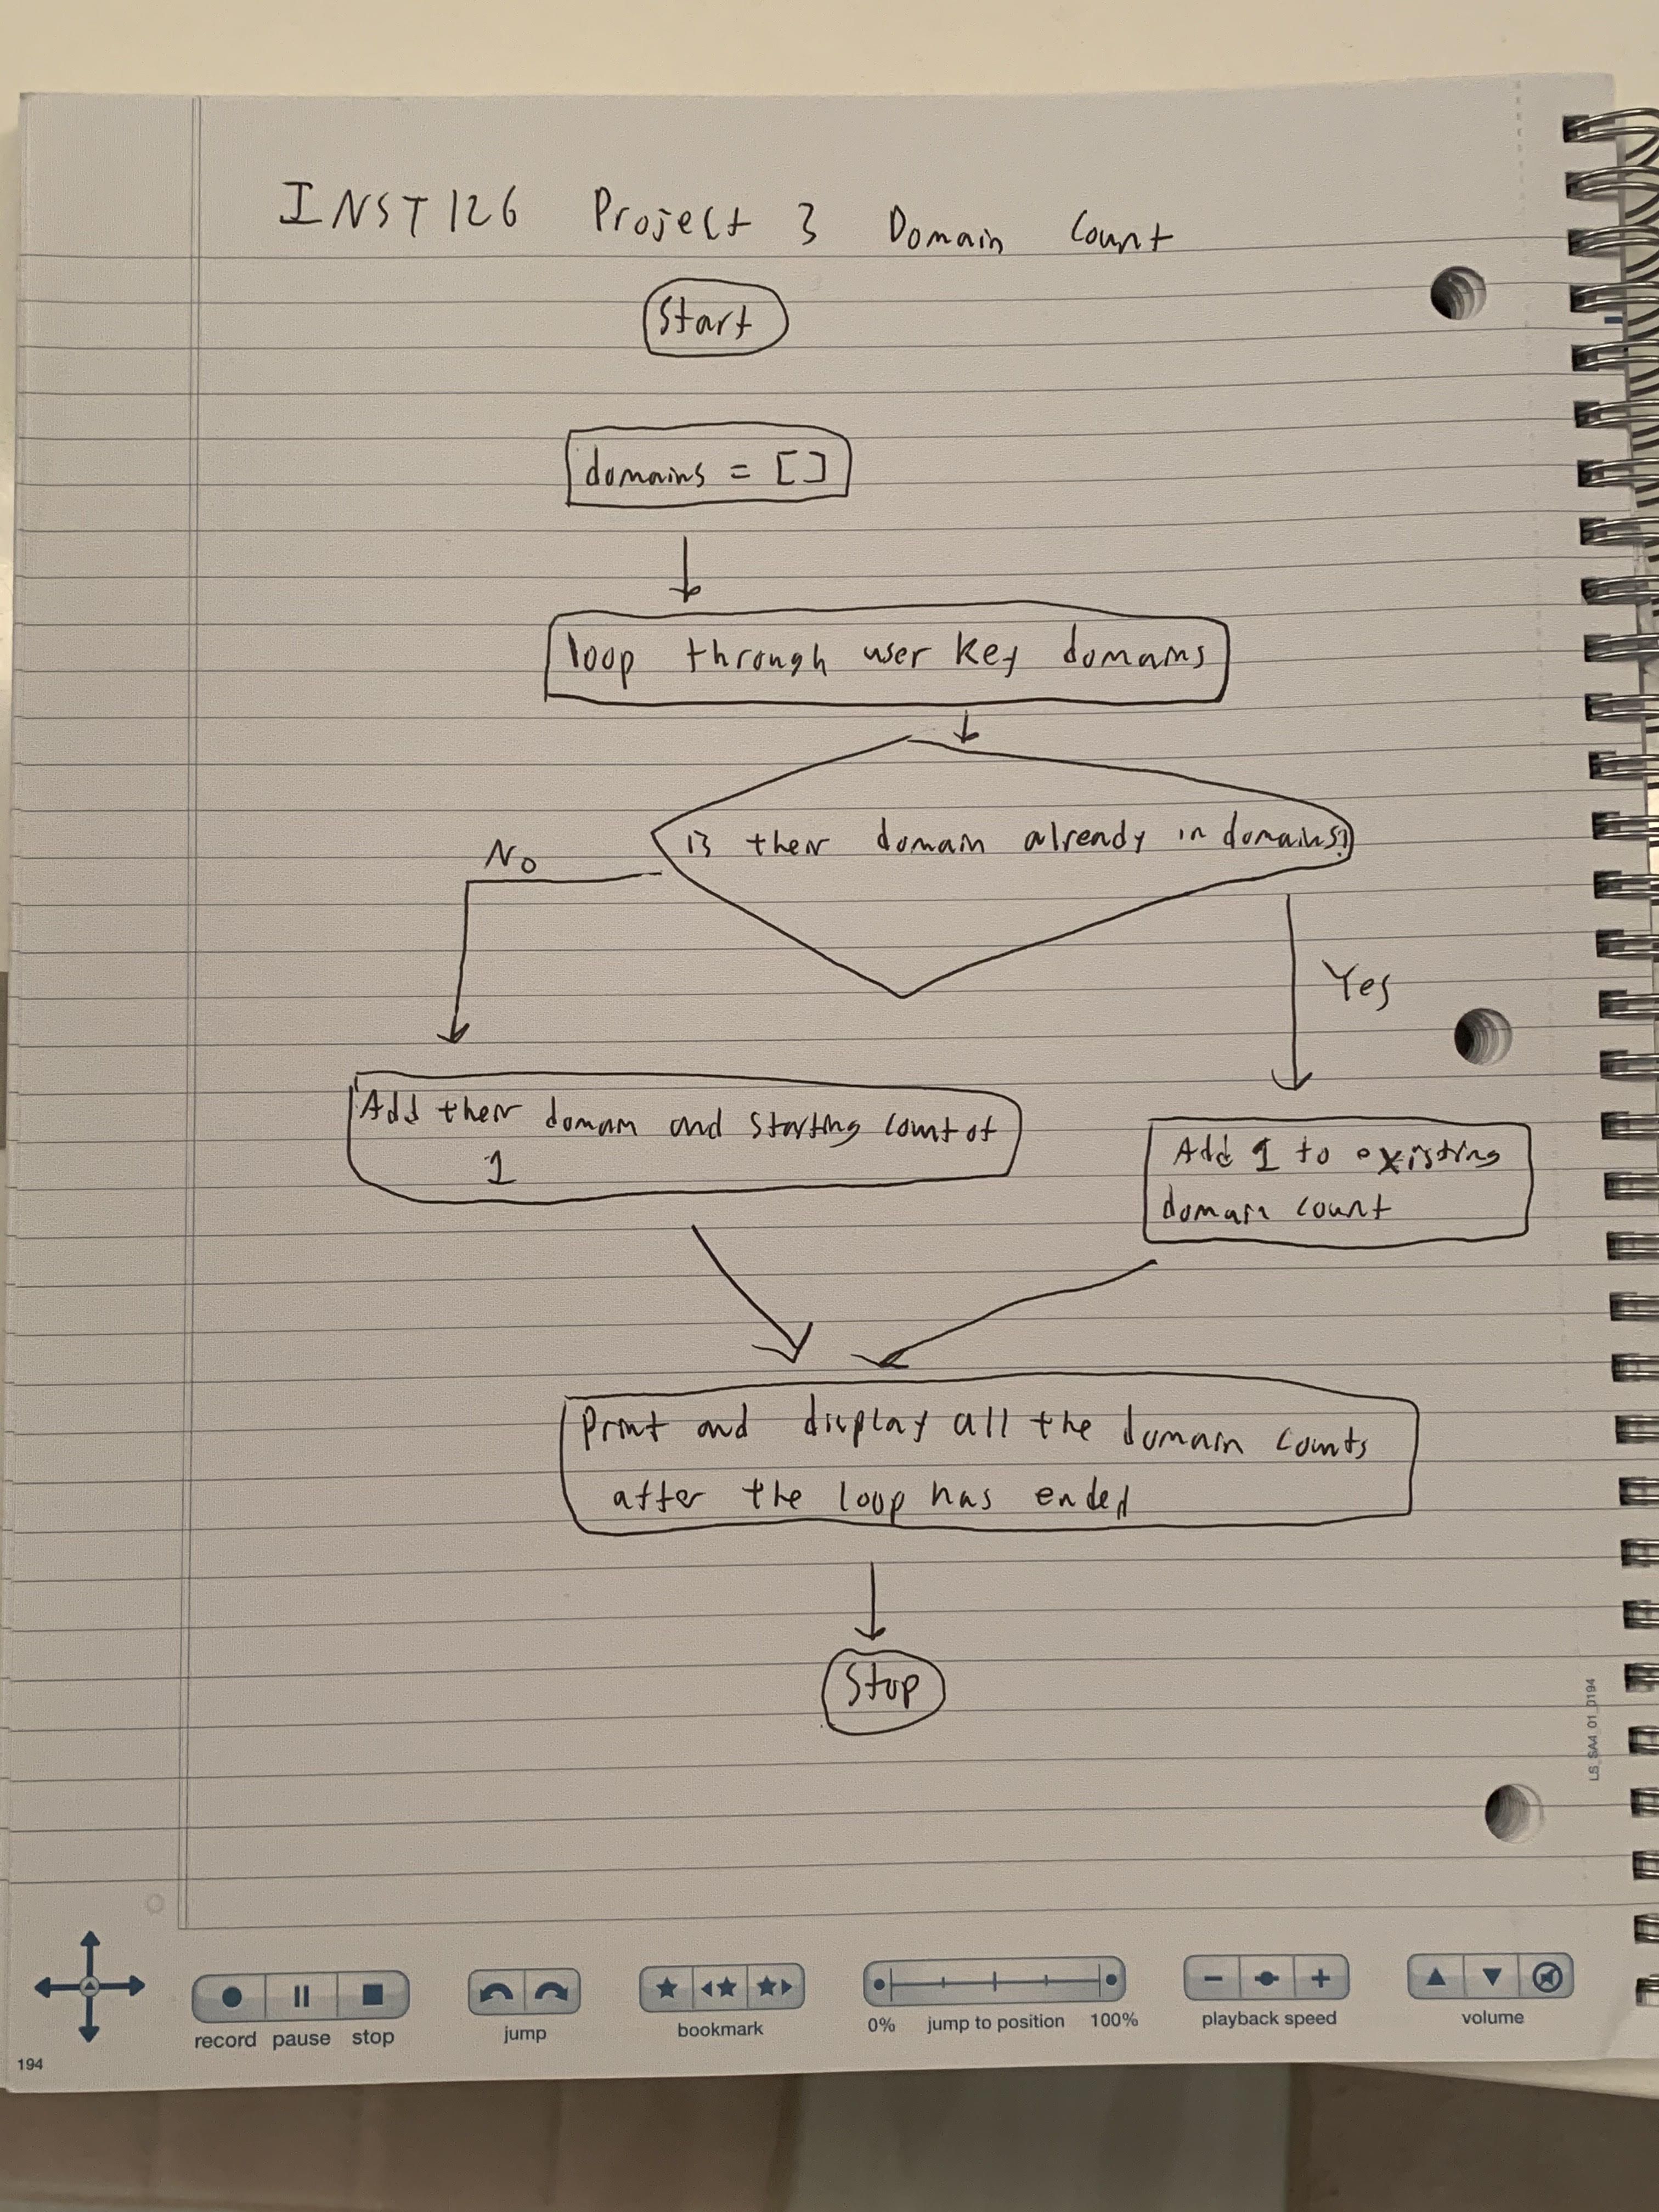 INST126 Project 3 Domain Count
Start
domains = []
loop through user key domains
is their domain already in domains?
No
Yes
Add their domain and starting count of
1
Add 1 to existing
domain count
Print and display all the domain counts
after the loop has ended
Stop
LS_SA4_01_0194
record pause stop
jump
bookmark
0% jump to position 100%
playback speed
volume
194